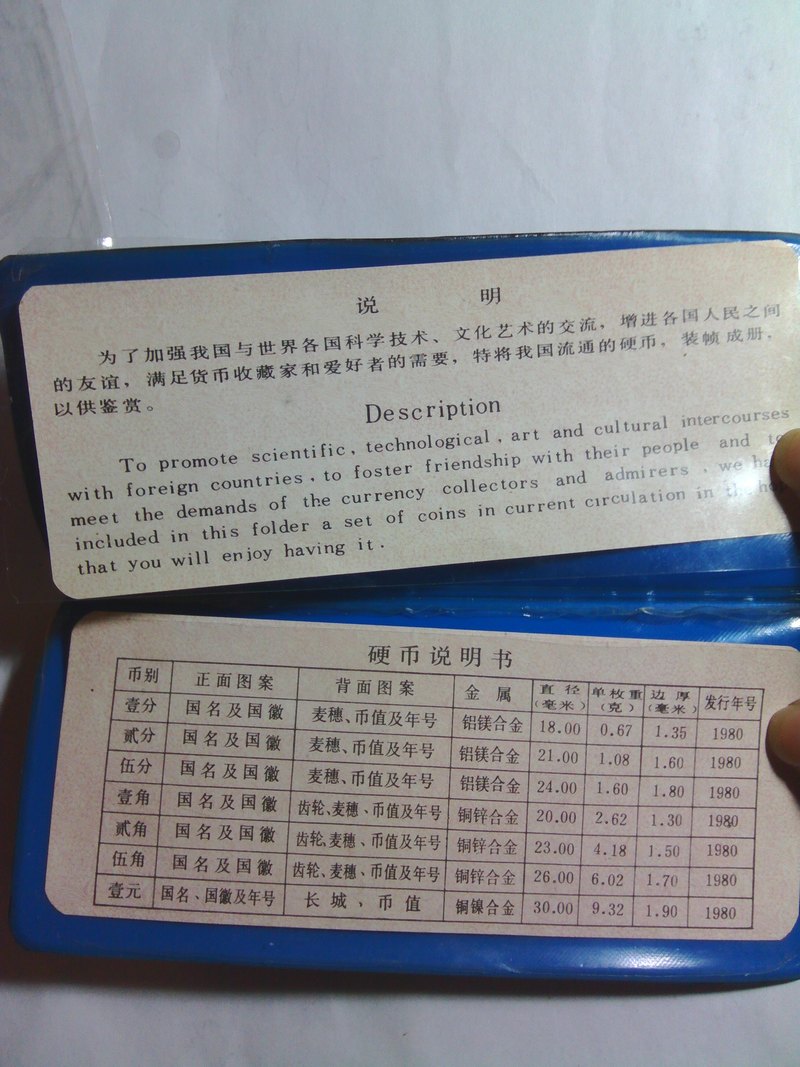 说 明
为了加强我国与世界各国科学技术、文化艺术的交流，增进各国人民之间
的友谊，满足货币收藏家和爱好者的需要，特将我国流通的硬币，装帧成册，
以供鉴赏。
Description
To promote scientific, technological, art and cultural intercourses
with foreign countries, to foster friendship with their people and to
meet the demands of the currency collectors and admirers, we
included in this folder a set of coins in current circulation in
that you will enjoy having it.
硬币说明书
币别 正面图案 背面图案 金属 直径(毫米) 单枚重(克) 边厚(毫米) 发行年号
壹分 国名及国徽 麦穗、币值及年号 铝镁合金 18.00 0.67 1.35 1980
贰分 国名及国徽 麦穗、币值及年号 铝镁合金 21.00 1.08 1.60 1980
伍分 国名及国徽 麦穗、币值及年号 铝镁合金 24.00 1.60 1.80 1980
壹角 国名及国徽 齿轮、麦穗、币值及年号 铜锌合金 20.00 2.62 1.30 1980
贰角 国名及国徽 齿轮、麦穗、币值及年号 铜锌合金 23.00 4.18 1.50 1980
伍角 国名及国徽 齿轮、麦穗、币值及年号 铜锌合金 26.00 6.02 1.70 1980
壹元 国名、国徽及年号 长城、币值 铜镍合金 30.00 9.32 1.90 1980